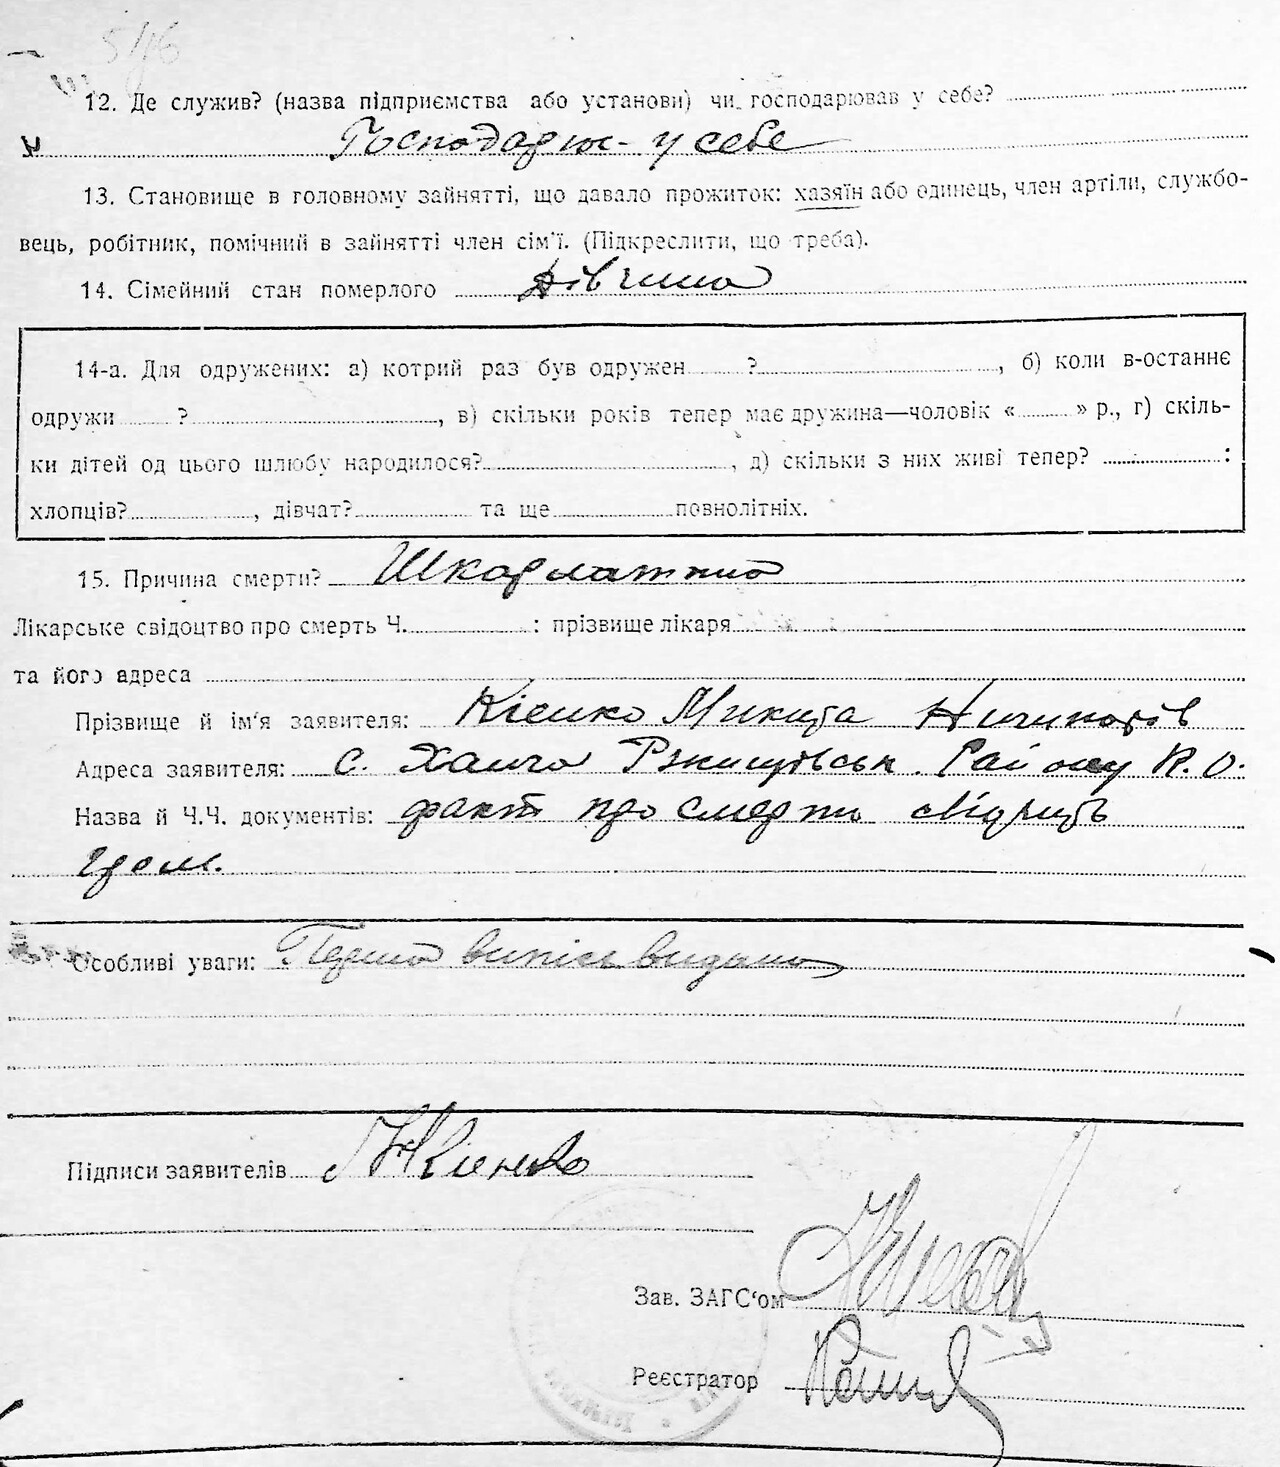 12. Де служив? (назва підприємства або установи) чи господарював у себе?
Господарює у себе
13. Становище в головному зайнятті, що давало прожиток: хазяїн або одинець, член артіли, службо-
вець, робітник, помічний в зайнятті член сім'ї. (Підкреслити, що треба).
14. Сімейний стан померлого Дівчина
14-а. Для одружених: а) котрий раз був одружен ?, б) коли в-останнє
одружи ?, в) скільки років тепер має дружина—чоловік « » р., г) скіль-
ки дітей од цього шлюбу народилося?, д) скільки з них живі тепер? :
хлопців?, дівчат? та ще повнолітніх.
15. Причина смерти? Шкарлатина
Лікарське свідоцтво про смерть Ч. : прізвище лікаря
та його адреса
Прізвище й ім'я заявителя: Кієнко Микита
Адреса заявителя: с. Ржищівськ. Району К. О.
Назва й Ч.Ч. документів: факт про смерть свідчить
Особливі уваги: Перша випись видана
Підписи заявителів Кіенко
Зав. ЗАГС'ом
Реєстратор